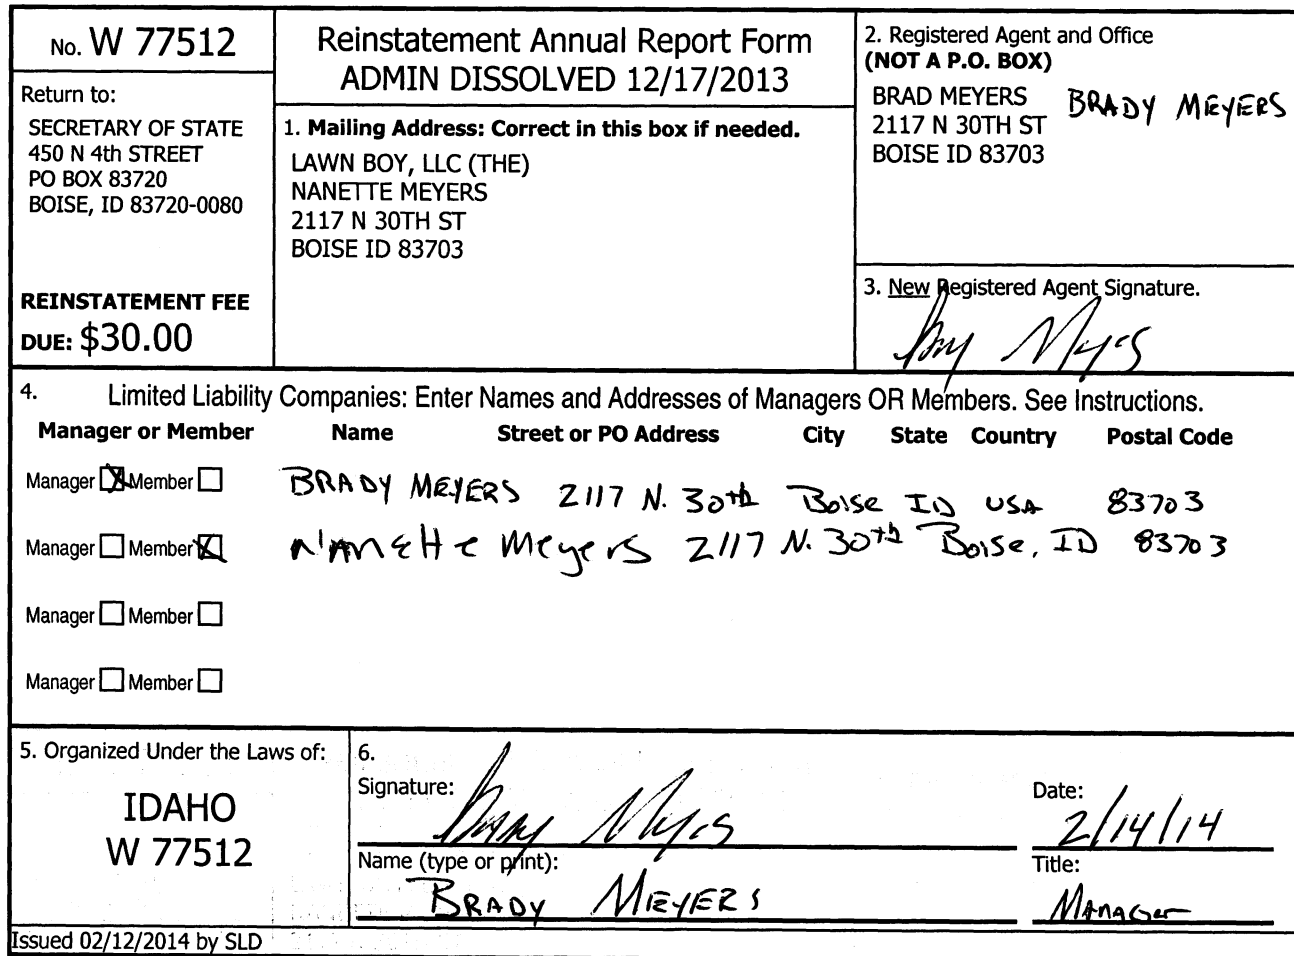 No. W 77512
Return to:
SECRETARY OF STATE
450 N 4th STREET
PO BOX 83720
BOISE, ID 83720-0080
REINSTATEMENT FEE
DUE: $30.00
Reinstatement Annual Report Form
ADMIN DISSOLVED 12/17/2013
1. Mailing Address: Correct in this box if needed.
LAWN BOY, LLC (THE)
NANETTE MEYERS
2117 N 30TH ST
BOISE ID 83703
2. Registered Agent and Office
(NOT A P.O. BOX)
BRAD MEYERS BRADY MEYERS
2117 N 30TH ST
BOISE ID 83703
3. New Registered Agent Signature.
4. Limited Liability Companies: Enter Names and Addresses of Managers OR Members. See Instructions.
Manager or Member Name Street or PO Address City State Country Postal Code
Manager Member BRADY MEYERS 2117 N. 30th Boise ID USA 83703
Manager Member NANETTE Meyers 2117 N. 30th Boise, ID 83703
Manager Member
Manager Member
5. Organized Under the Laws of:
IDAHO
W 77512
6.
Signature:
Date:
2/14/14
Name (type or print):
BRADY MEYERS
Title:
MANAGER
Issued 02/12/2014 by SLD